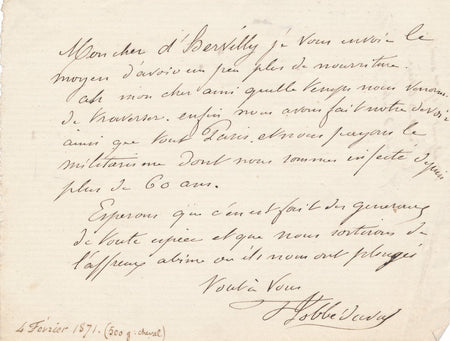 Mon cher d'Hervilly je vous envoie le
moyen d'avoir un peu plus de nourriture.
ah mon cher ami quelle temps nous venons
de traverser. enfin nous avons fait notre devoir
ainsi que tout Paris. et nous payons le
militarisme dont nous sommes infecté depuis
plus de 60 ans.
Esperons que c'en est fait des generaux
de toute espece et que nous sortirons de
l'affreux abime ou ils nous ont plongés
Tout à Vous
4 Février 1871. (500 g. cheval)